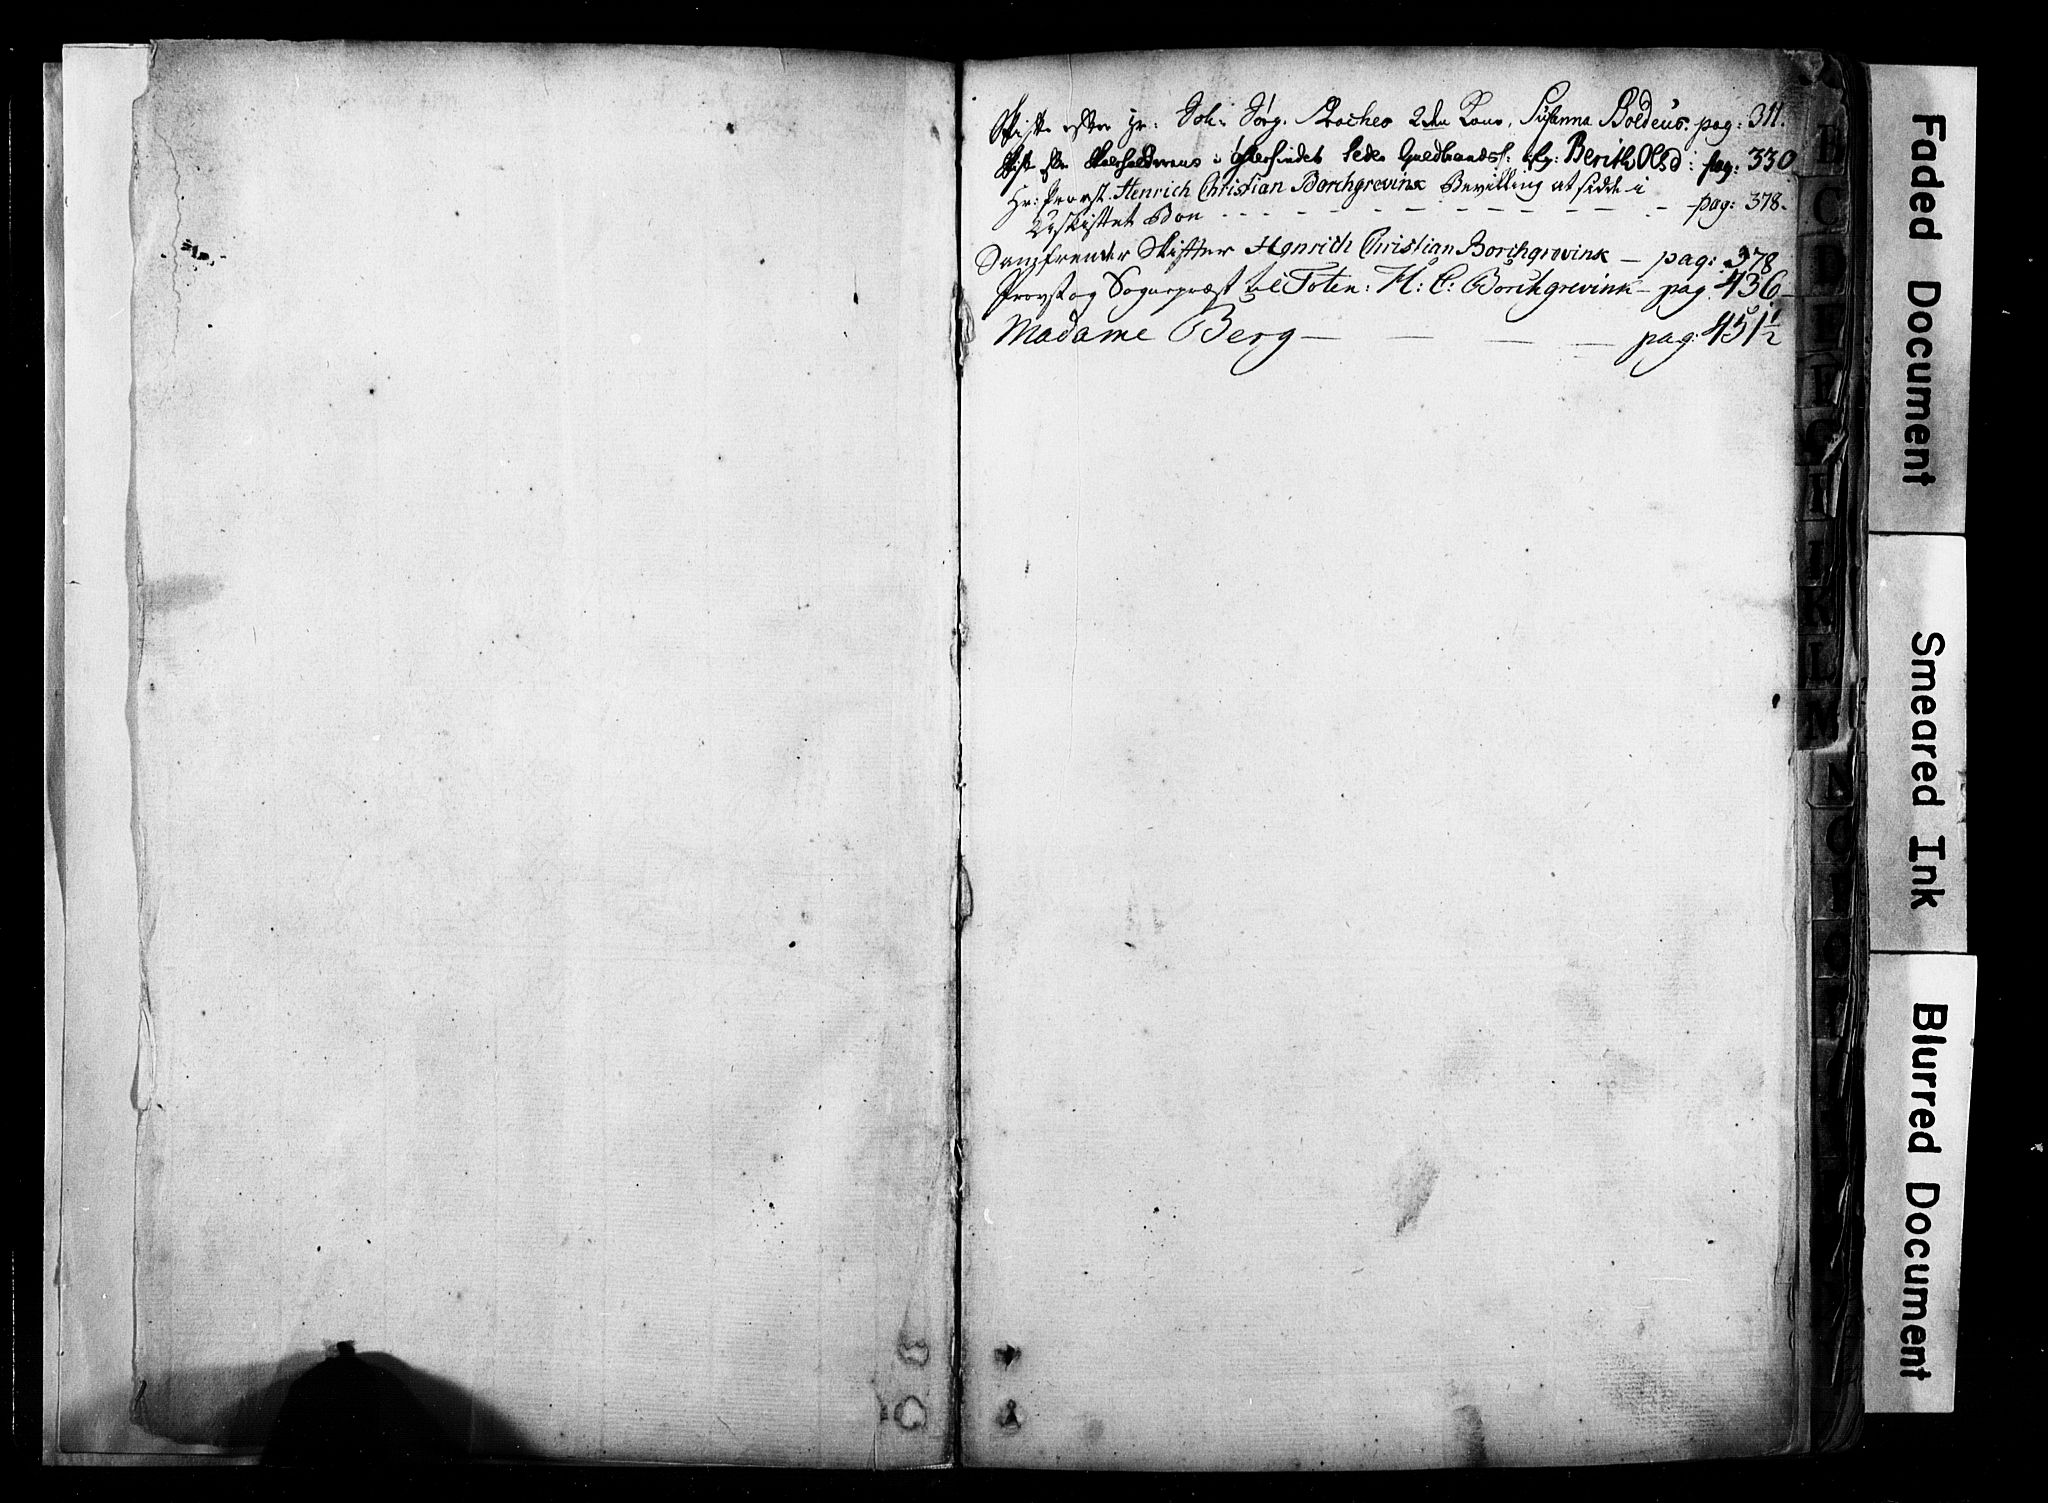 Skifte efter Hr: Joh: Jørg. Roches 2den Kone, Susanna Boldeus. pag: 311.
Skifte efter Skoeholderens i Østerlindet Peder Guldbrands: Berith Olsd: pag: 330
Hr: Provst. Henrich Christian Borchgrevink Bevilling at sidde i
Uskiftet Boe - - - pag: 378.
Samfrender Skifter Henrich Christian Borchgrevink — pag: 378
Provst og Sognepræst til Toten: H: C: Borchgrevink — pag. 436
Madame Berg — — — — pag: 451½
B
C
D
E
F
G
H
I
K
L
M
N
O
P
Q
R
Faded Document
Smeared Ink
Blurred Document